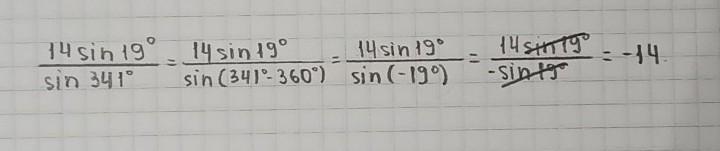 14 sin 19° / sin 341° = 14 sin 19° / sin (341° - 360°) = 14 sin 19° / sin (-19°) = 14 sin 19° / -sin 19° = -14.